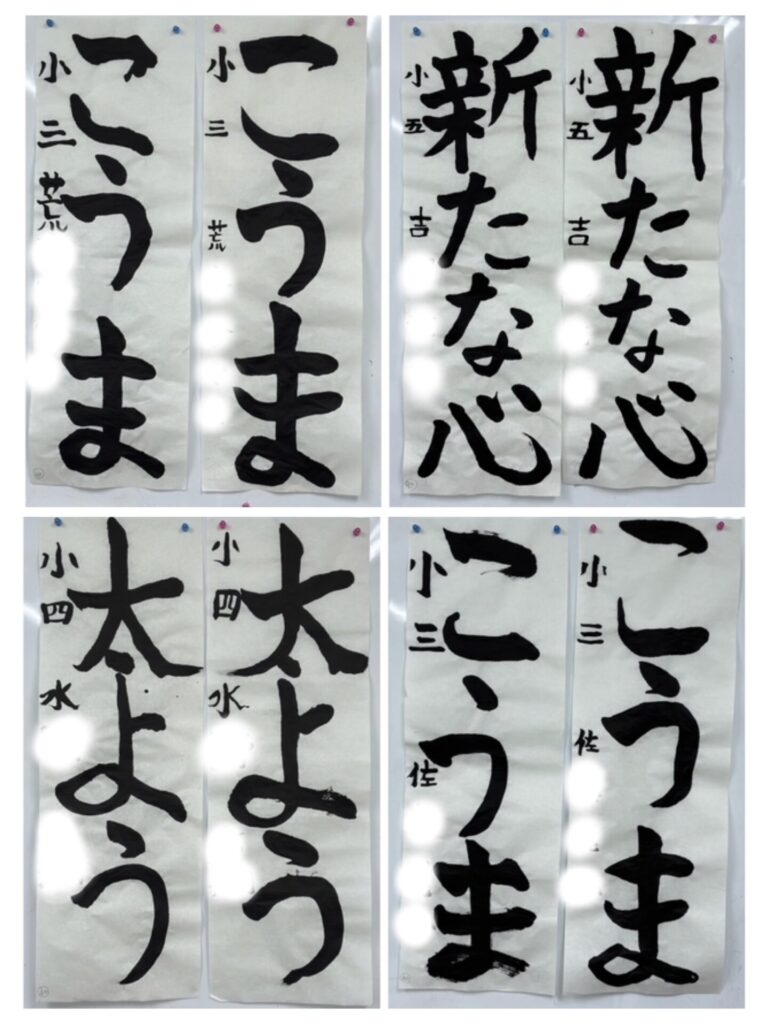 こうま
小三 荒
こうま
小三 荒
新たな心
小五 吉
新たな心
小五 吉
太よう
小四 水
太よう
小四 水
こうま
小三 佐
こうま
小三 佐